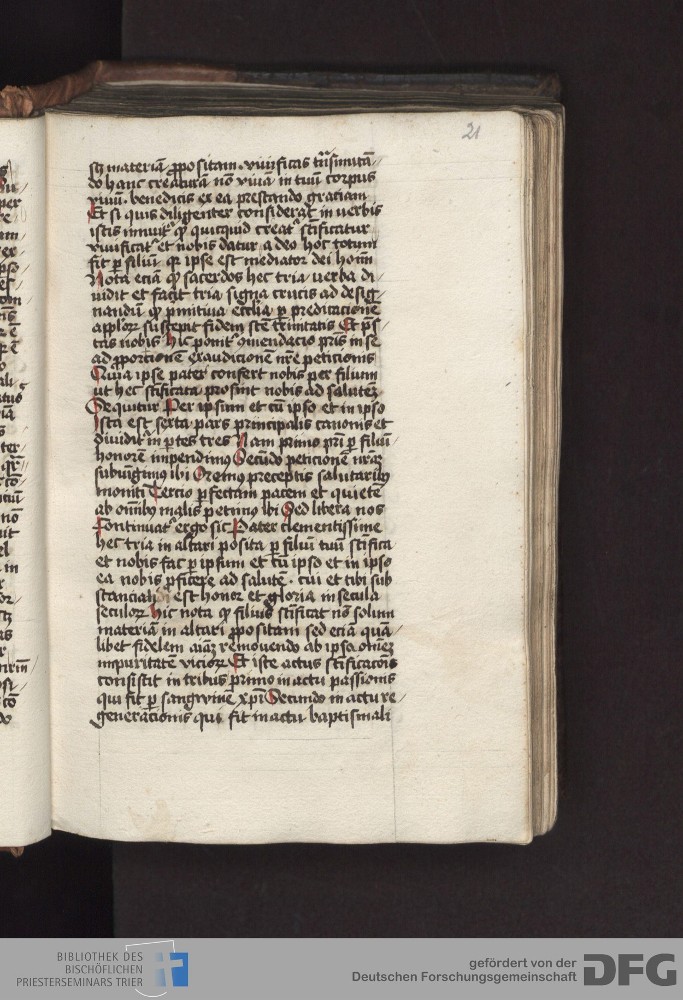 21
scꝫ materiā ꝓpositam · viuificas trāsmutā/
do hanc creaturā nō viuā in tuū corpus
viuū · benedicis ex ea prestando gratiam
Et si quis diligenter considerat in verbis
istis innuit̉ ꝙ quicquid creat̉ sc̄ificatur
viuificat̉ et nobis datur a deo hoc totum
fit ꝑ filiū quia ipse est mediator dei homī
Nota eciā ꝙ sacerdos hec tria verba di
uidit et facit tria signa crucis ad desig
nandū ꝙ p̄mitiua eccl̄ia ꝑ predicacionē
apl̄oꝝ suscepit fidem sc̄te t̄nitatis Et p̄s
tas nobis Hic ponit̉
ad ꝓporcionē exaudicionē nr̄e peticionis
Quia ipse pater confert nobis per filium
ut hec sc̄ificata prosint nobis ad salutē
Sequitur Per ipsum et cū ipso et in ipso
Ista est sexta pars principalis canonis et
diuidit̉ in ꝑtes tres Nam primo p̄ri ꝑ filiū
honorē impendimꝰ Secūdo peticionē nr̄aꝫ
subiūgimꝰ ibi Oremꝰ preceptis salutaribꝰ
moniti Tercio ꝑfectam pacem et quietē
ab om̄ibꝰ malis petimꝰ ibi Sed libera nos
Continuat̉ ergo sic Pater clementissime
hec tria in altari posita ꝑ filiū tuū sc̄ifica
et nobis fac ꝑ ipsum et cū ipso et in ipso
ea nobis ꝓficere ad salutē · cui et tibi sub
stanciali est honor et gloria in secula
seculoꝝ Hic nota ꝙ filius sc̄ificat nō solum
materiā in altari ꝓpositam sed eciā quā/
libet fidelem aīaꝫ remouendo ab ipsa om̄eꝫ
impuritatē vicioꝝ Et iste actus sc̄ificacōis
consistit in tribus primo in actu passionis
qui fit ꝑ sangwinē xp̄i Secundo in actu re/
generacionis qui fit in actu baptismali
BIBLIOTHEK DES
BISCHÖFLICHEN
PRIESTERSEMINARS TRIER
gefördert von der
Deutschen Forschungsgemeinschaft
DFG